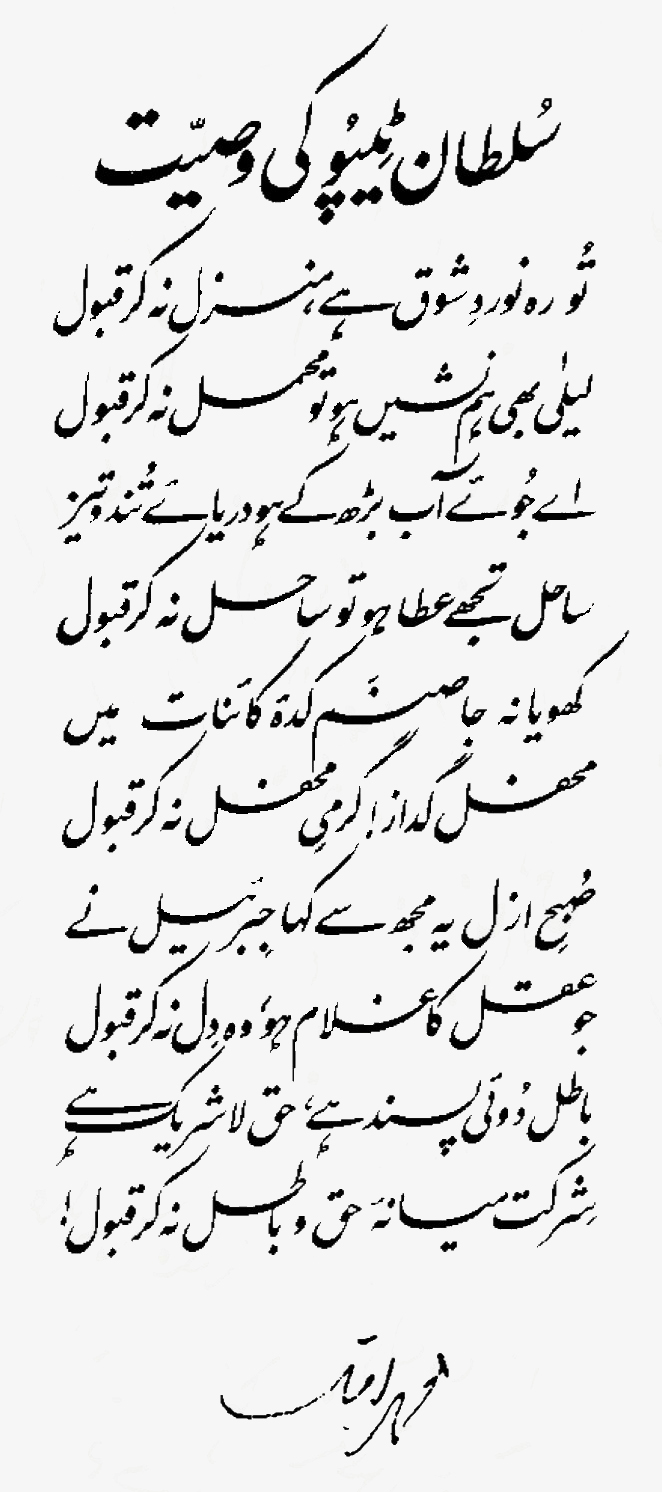 سُلطان ٹیپُو کی وصیّت
تُو رہ نوردِ شوق ہے، منزل نہ کر قبول
لیلٰی بھی ہم نشیں ہو تو محمل نہ کر قبول
اے جُوئے آب بڑھ کے ہو دریائے تُند و تیز
ساحل تجھے عطا ہو تو ساحل نہ کر قبول
کھویا نہ جا صنَم کدۂ کائنات میں
محفل گداز! گرمیِ محفل نہ کر قبول
صُبحِ ازل یہ مجھ سے کہا جبرئیل نے
جو عقل کا غلام ہو، وہ دِل نہ کر قبول
باطل دُوئی پسند ہے، حق لا شریک ہے
شِرکت میانۂ حق و باطل نہ کر قبول!
محمد اقبال